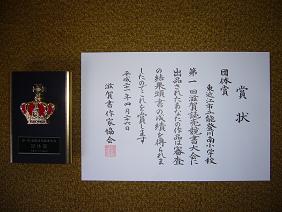 賞状
団体賞
東近江市立能登川南小学校
第一回滋賀誌売競書大会に
出品されたあなたの作品は審査
の結果頭書の成績を得られま
したのでこれを賞します
平成二十一年四月二十六日
滋賀書作家協会
団体賞